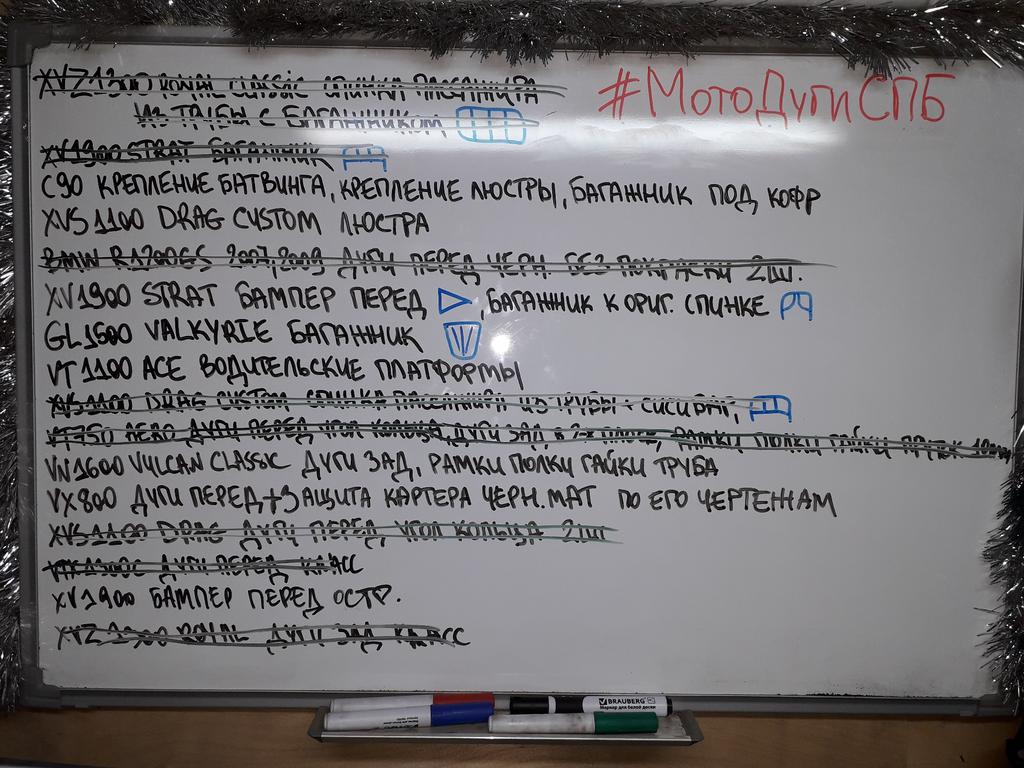 #МотоДугиСПБ
XVZ1300 ROYAL CLASSIC СПИНКА ПАССАЖИРА
ИЗ ТРУБЫ С БАГАЖНИКОМ
XV1900 STRAT БАГАЖНИК
C90 КРЕПЛЕНИЕ БАТВИНГА, КРЕПЛЕНИЕ ЛЮСТРЫ, БАГАЖНИК ПОД КОФР
XVS1100 DRAG CUSTOM ЛЮСТРА
BMW R1200GS 2007,2009 ДУГИ ПЕРЕД ЧЕРН. БЕЗ ПОКРАСКИ 2ШТ.
XV1900 STRAT БАМПЕР ПЕРЕД , БАГАЖНИК К ОРИГ. СПИНКЕ
GL1500 VALKYRIE БАГАЖНИК
VT1100 ACE ВОДИТЕЛЬСКИЕ ПЛАТФОРМЫ
XVS1100 DRAG CUSTOM СПИНКА ИЗ ТРУБЫ +
ДУГИ ПЕРЕД УГОЛ КОЛЬЦА, ДУГИ ЗАД В 2-Х РАМКИ ПОЛКИ ГАЙКИ
VN1600 VULCAN CLASSIC ДУГИ ЗАД, РАМКИ ПОЛКИ ГАЙКИ ТРУБА
VX800 ДУГИ ПЕРЕД+ЗАЩИТА КАРТЕРА ЧЕРН.МАТ ПО ЕГО ЧЕРТЕЖАМ
XVS1100 DRAG ДУГИ ПЕРЕД, УГОЛ КОЛЬЦА 2ШТ
ДУГИ ПЕРЕД КЛАСС
XV1900 БАМПЕР ПЕРЕД ОСТР.
XVZ1300 ROYAL ДУГИ ЗАД КЛАСС
BRAUBERG
Маркер для белой доски